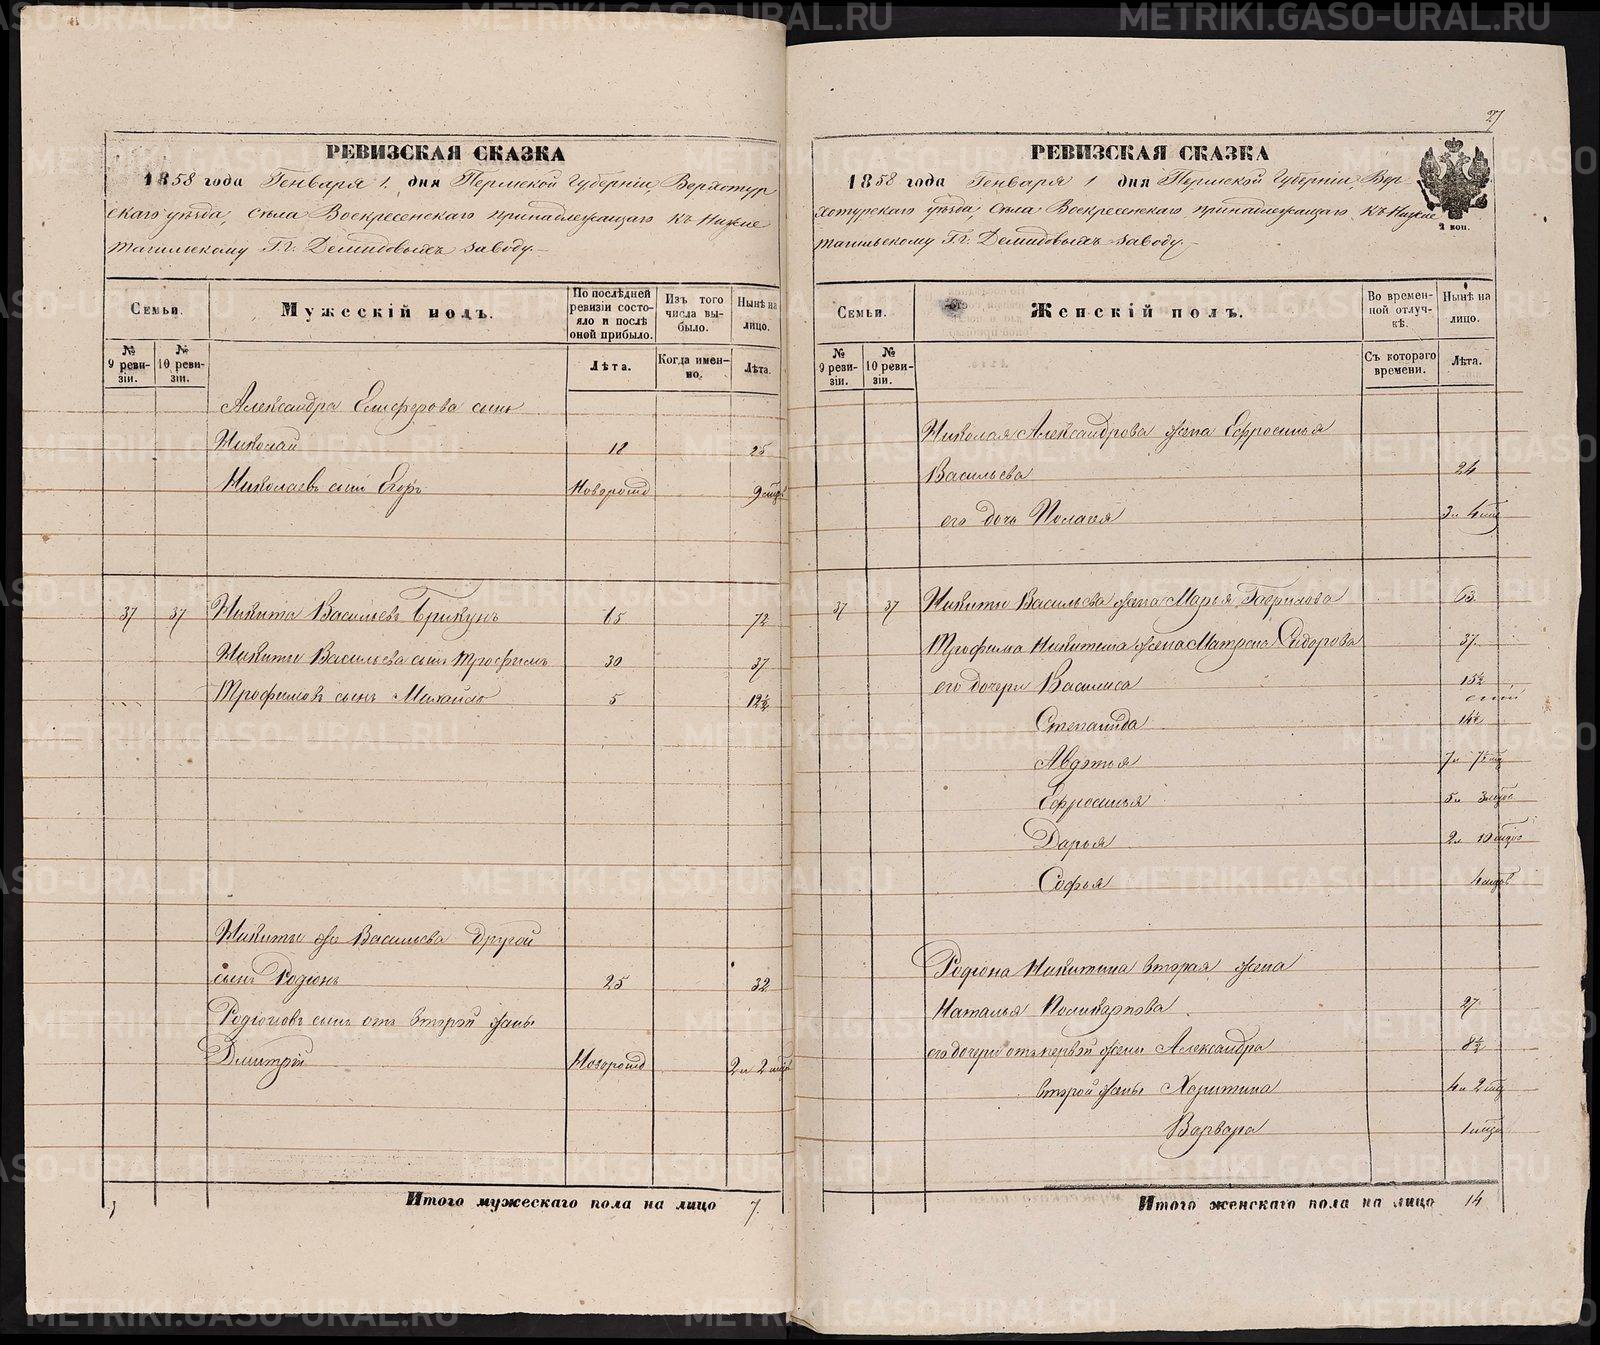 РЕВИЗСКАЯ СКАЗКА
1858 года Генваря 1. дня Пермской Губерніи Верхотур
скаго уѣзда, села Воскресенскаго принадлежащаго къ Нижне
тагильскому Г.г. Демидовыхъ заводу.—
Семьи.
Мужескій полъ.
По послѣдней ревизіи состояло и послѣ оной прибыло.
Изъ того числа выбыло.
Нынѣ на лицо.
№ 9 ревизіи.
№ 10 ревизіи.
Лѣта.
Когда именно.
Лѣта.
Александра Елисѣева сынъ
Николай 18 25
Николаевъ сынъ Егоръ Новорожд 9 мцъ
37 37 Никита Васильевъ Брикунъ 65 72
Никиты Васильева сынъ Трофимъ 30 37
Трофимовъ сынъ Михайло 5 12½
Никиты же Васильева другой
сынъ Родіонъ 25 32
Родіоновъ сынъ отъ второй жены
Дмитрій Новорожд 2 и 2 мцъ
Итого мужескаго пола на лицо 7.
27
РЕВИЗСКАЯ СКАЗКА
1858 года Генваря 1 дня Пермской Губерніи, Вер-
хотурскаго уѣзда, села Воскресенскаго, принадлежащаго къ Нижне
тагильскому Г.г. Демидовыхъ заводу.—
2 коп.
Семьи.
Женскій полъ.
Во временной отлучкѣ.
Нынѣ на лицо.
№ 9 ревизіи.
№ 10 ревизіи.
Съ котораго времени.
Лѣта.
Николая Александрова жена Ефросинья
Васильева 24
его дочь Пелагея 3 и 4 мцъ
37 37 Никиты Васильева жена Марья Гаврилова 63
Трофима Никитина жена Матрена Сидорова 37.
его дочери Василиса 15½
Степанида 14½
Авдотья 7 и 7 мцъ
Ефросинья 5 и 3 мцъ
Дарья 2 и 10 мцъ
Софья 4 мцъ
Родіона Никитина вторая жена
Наталья Поликарпова 27
его дочери отъ первой жены Александра 8½
второй жены Харитина 4 и 2 мцъ
Варвара 1 мцъ
Итого женскаго пола на лицо 14
METRIKI.GASO-URAL.RU